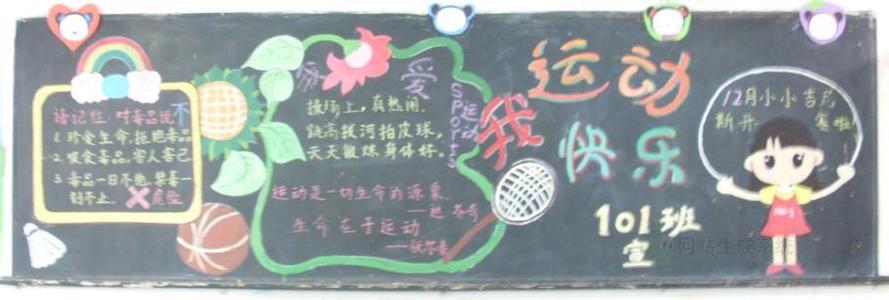 请记住:对毒品说不
1. 珍爱生命,拒绝毒品
2. 吸食毒品,害人害己
3. 毒品一日不绝,禁毒一
刻不止. 危险
我 爱
运动
SPORTS
操场上,真热闹.
跳高拔河拍皮球,
天天锻炼身体好。
运动是一切生命的源泉.
生命在于运动
我
运动
快乐
101班
宣
12月小小吉尼
斯开 赛啦
网站生成系统